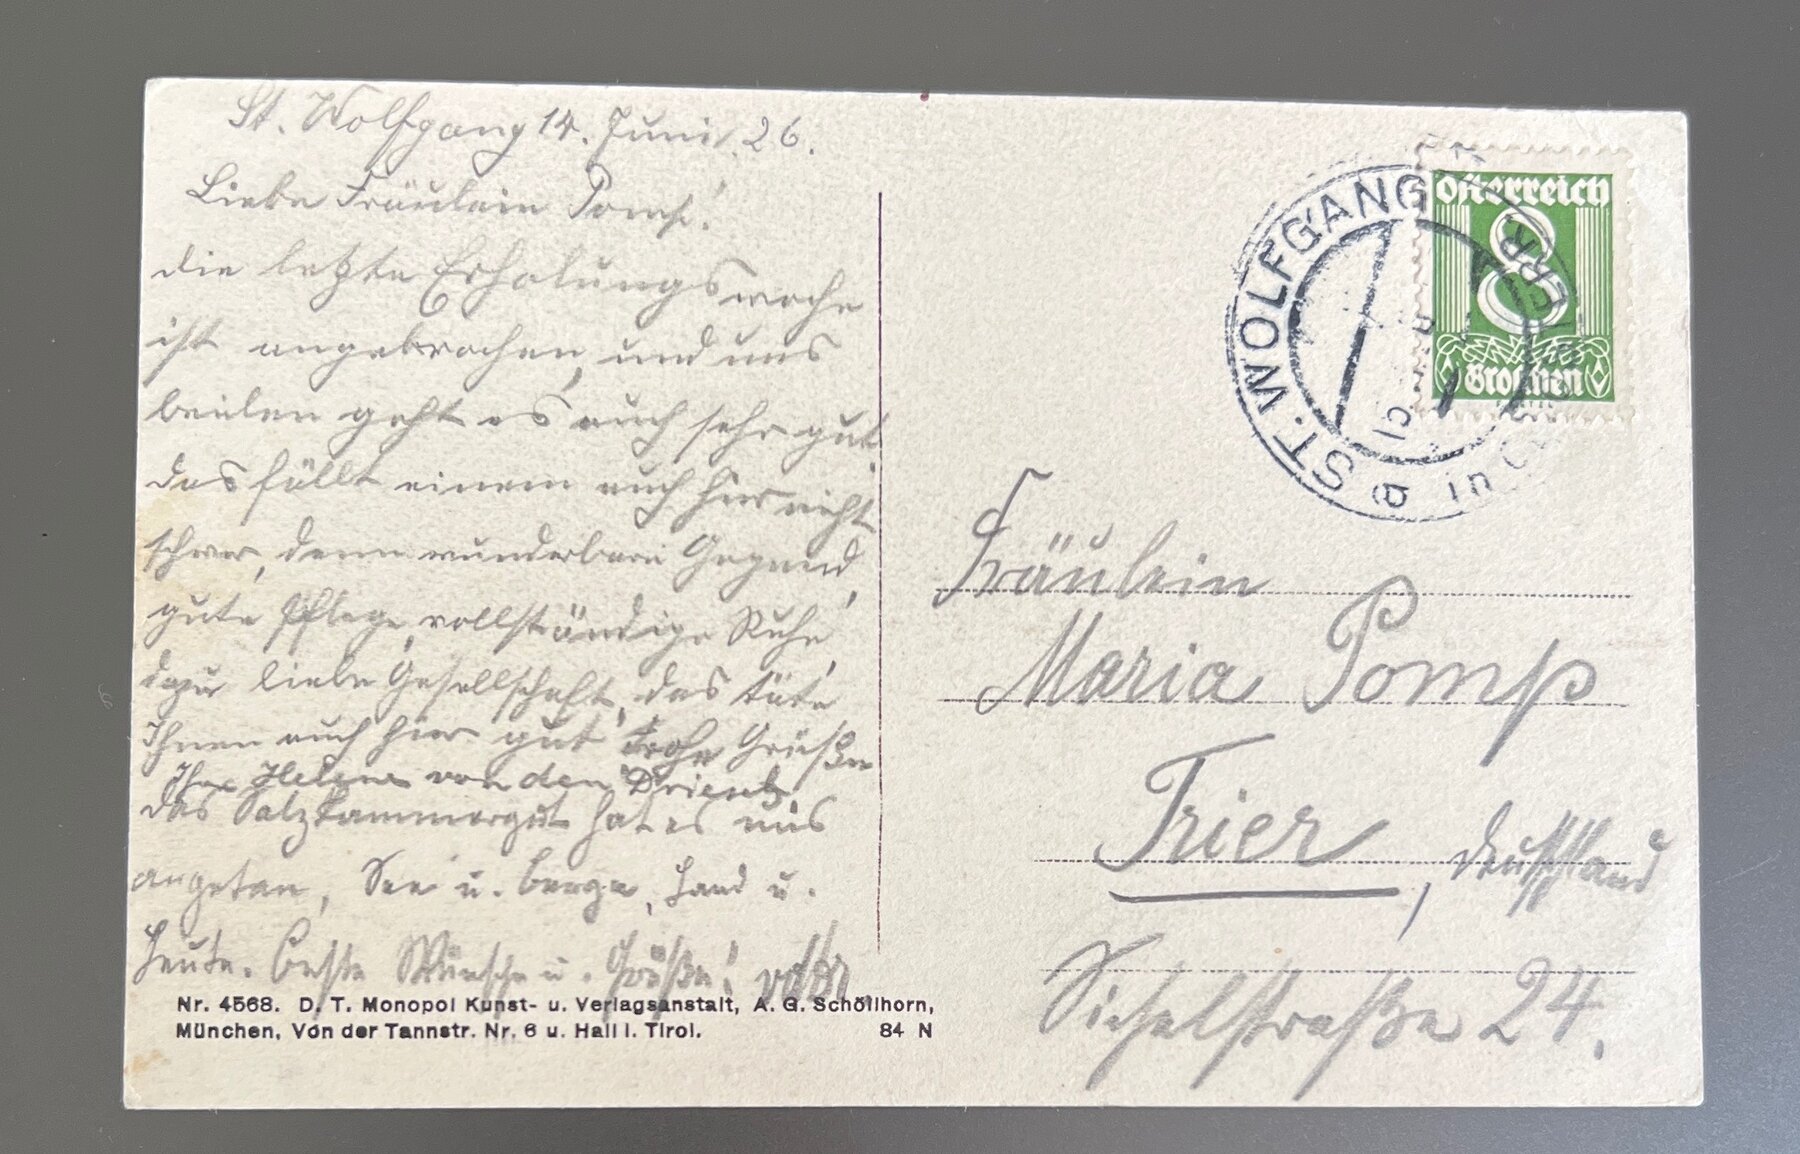 St. Wolfgang 14. Juni 26.
Liebe Fräulein Pomp!
die letzte Erholungswoche
ist angebrochen, und uns
beiden geht es auch sehr gut
das fällt einem auch hier nicht
schwer, denn wunderbare Gegend,
gute Pflege, vollständige Ruhe,
dazu liebe Gesellschaft, das täte
Ihnen auch hier gut. Frohe Grüße
Ihre Helene von den Driesch
das Salzkammergut hat es uns
angetan, See u. Berge, Land u.
Leute. Beste Wünsche u. Grüße!
Nr. 4568. D. T. Monopol Kunst- u. Verlagsanstalt, A. G. Schöllhorn,
München, Von der Tannstr. Nr. 6 u. Hall i. Tirol. 84 N
ST. WOLFGANG
in
Österreich
8
Groschen
Fräulein
Maria Pomp
Trier, Deutschland
Sichelstraße 24.